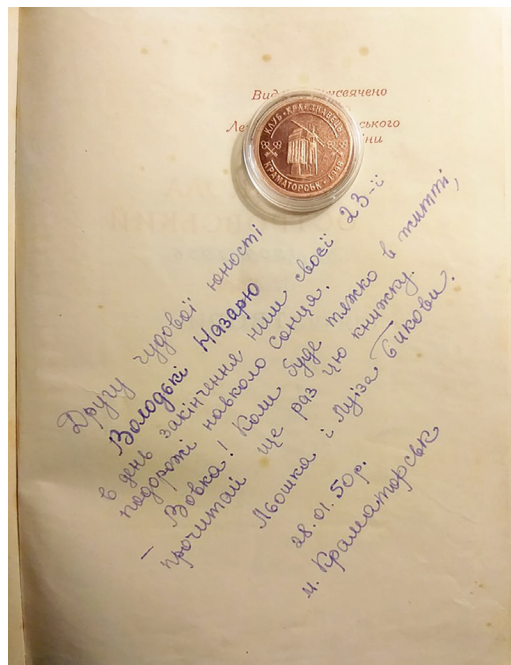 Вид присвячено
Ле ського
їни
КЛУБ • КРАЄЗНАВЕЦЬ
КРАМАТОРСЬК • 1998
Другу чудової юності
Володькі Назарю
в день закінчення ним своєї 23-ї
подорожі навколо сонця.
– Вовка! Коли буде тяжко в житті,
прочитай ще раз цю книжку.
Льошка і Луїза Бикови.
28.01.50р.
м. Краматорськ